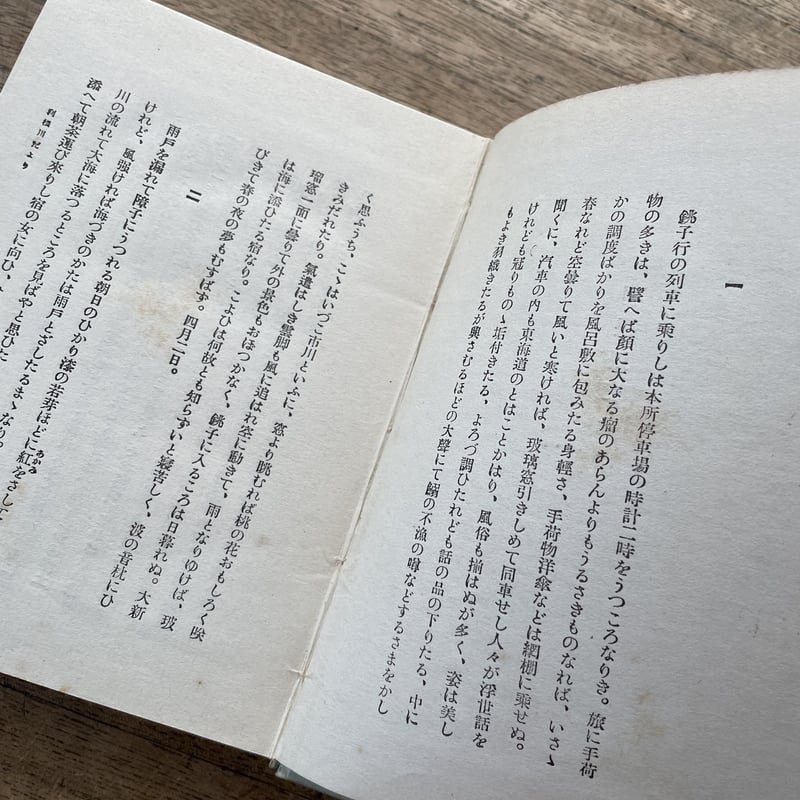 一
銚子行の列車に乘りしは本所停車場の時計二時をうつころなりき。旅に手荷
物の多きは、譬へば顏に大なる瘤のあらんよりもうるさきものなれば、いさゝ
かの調度ばかりを風呂敷に包みたる身輕さ、手荷物洋傘などは網棚に乘せぬ。
春なれど空曇りて風いと寒ければ、玻璃窓引きしめて同車せし人々が浮世話を
聞くに、汽車の内も東海道のとはことかはり、風俗も揃はぬが多く、姿は美し
けれども冠りものゝ垢付きたる、よろづ調ひたれども話の品の下りたる、中に
もよき羽織きたるが興さむるほどの大聲にて鰯の不漁の噂などするさまをかし
く思ふうち、こゝはいづこ市川といふに、窓より眺むれば桃の花おもしろく咲
きみだれたり。氣遣はしき雲脚も風に追はれ空に動きて、雨となりゆけば、玻
瑠窓一面に曇りて外の景色もおぼつかなく、銚子に入るころは日暮れぬ。大新
は海に添ひたる宿なり。こよひは何故とも知らずいと寢苦しく、波の音枕にひ
びきて春の夜の夢もむすばず。四月二日。
二
雨戸を漏れて障子にうつれる朝日のひかり漆の若芽ほどに紅をさして
あかみ
けれど、風強ければ海づきのかたは雨戸とざしたるまゝなり。
川の流れて大海に落つるところを見ばやと思ひた
添へて朝茶運び來りし宿の女に向ひ、
利根川だより